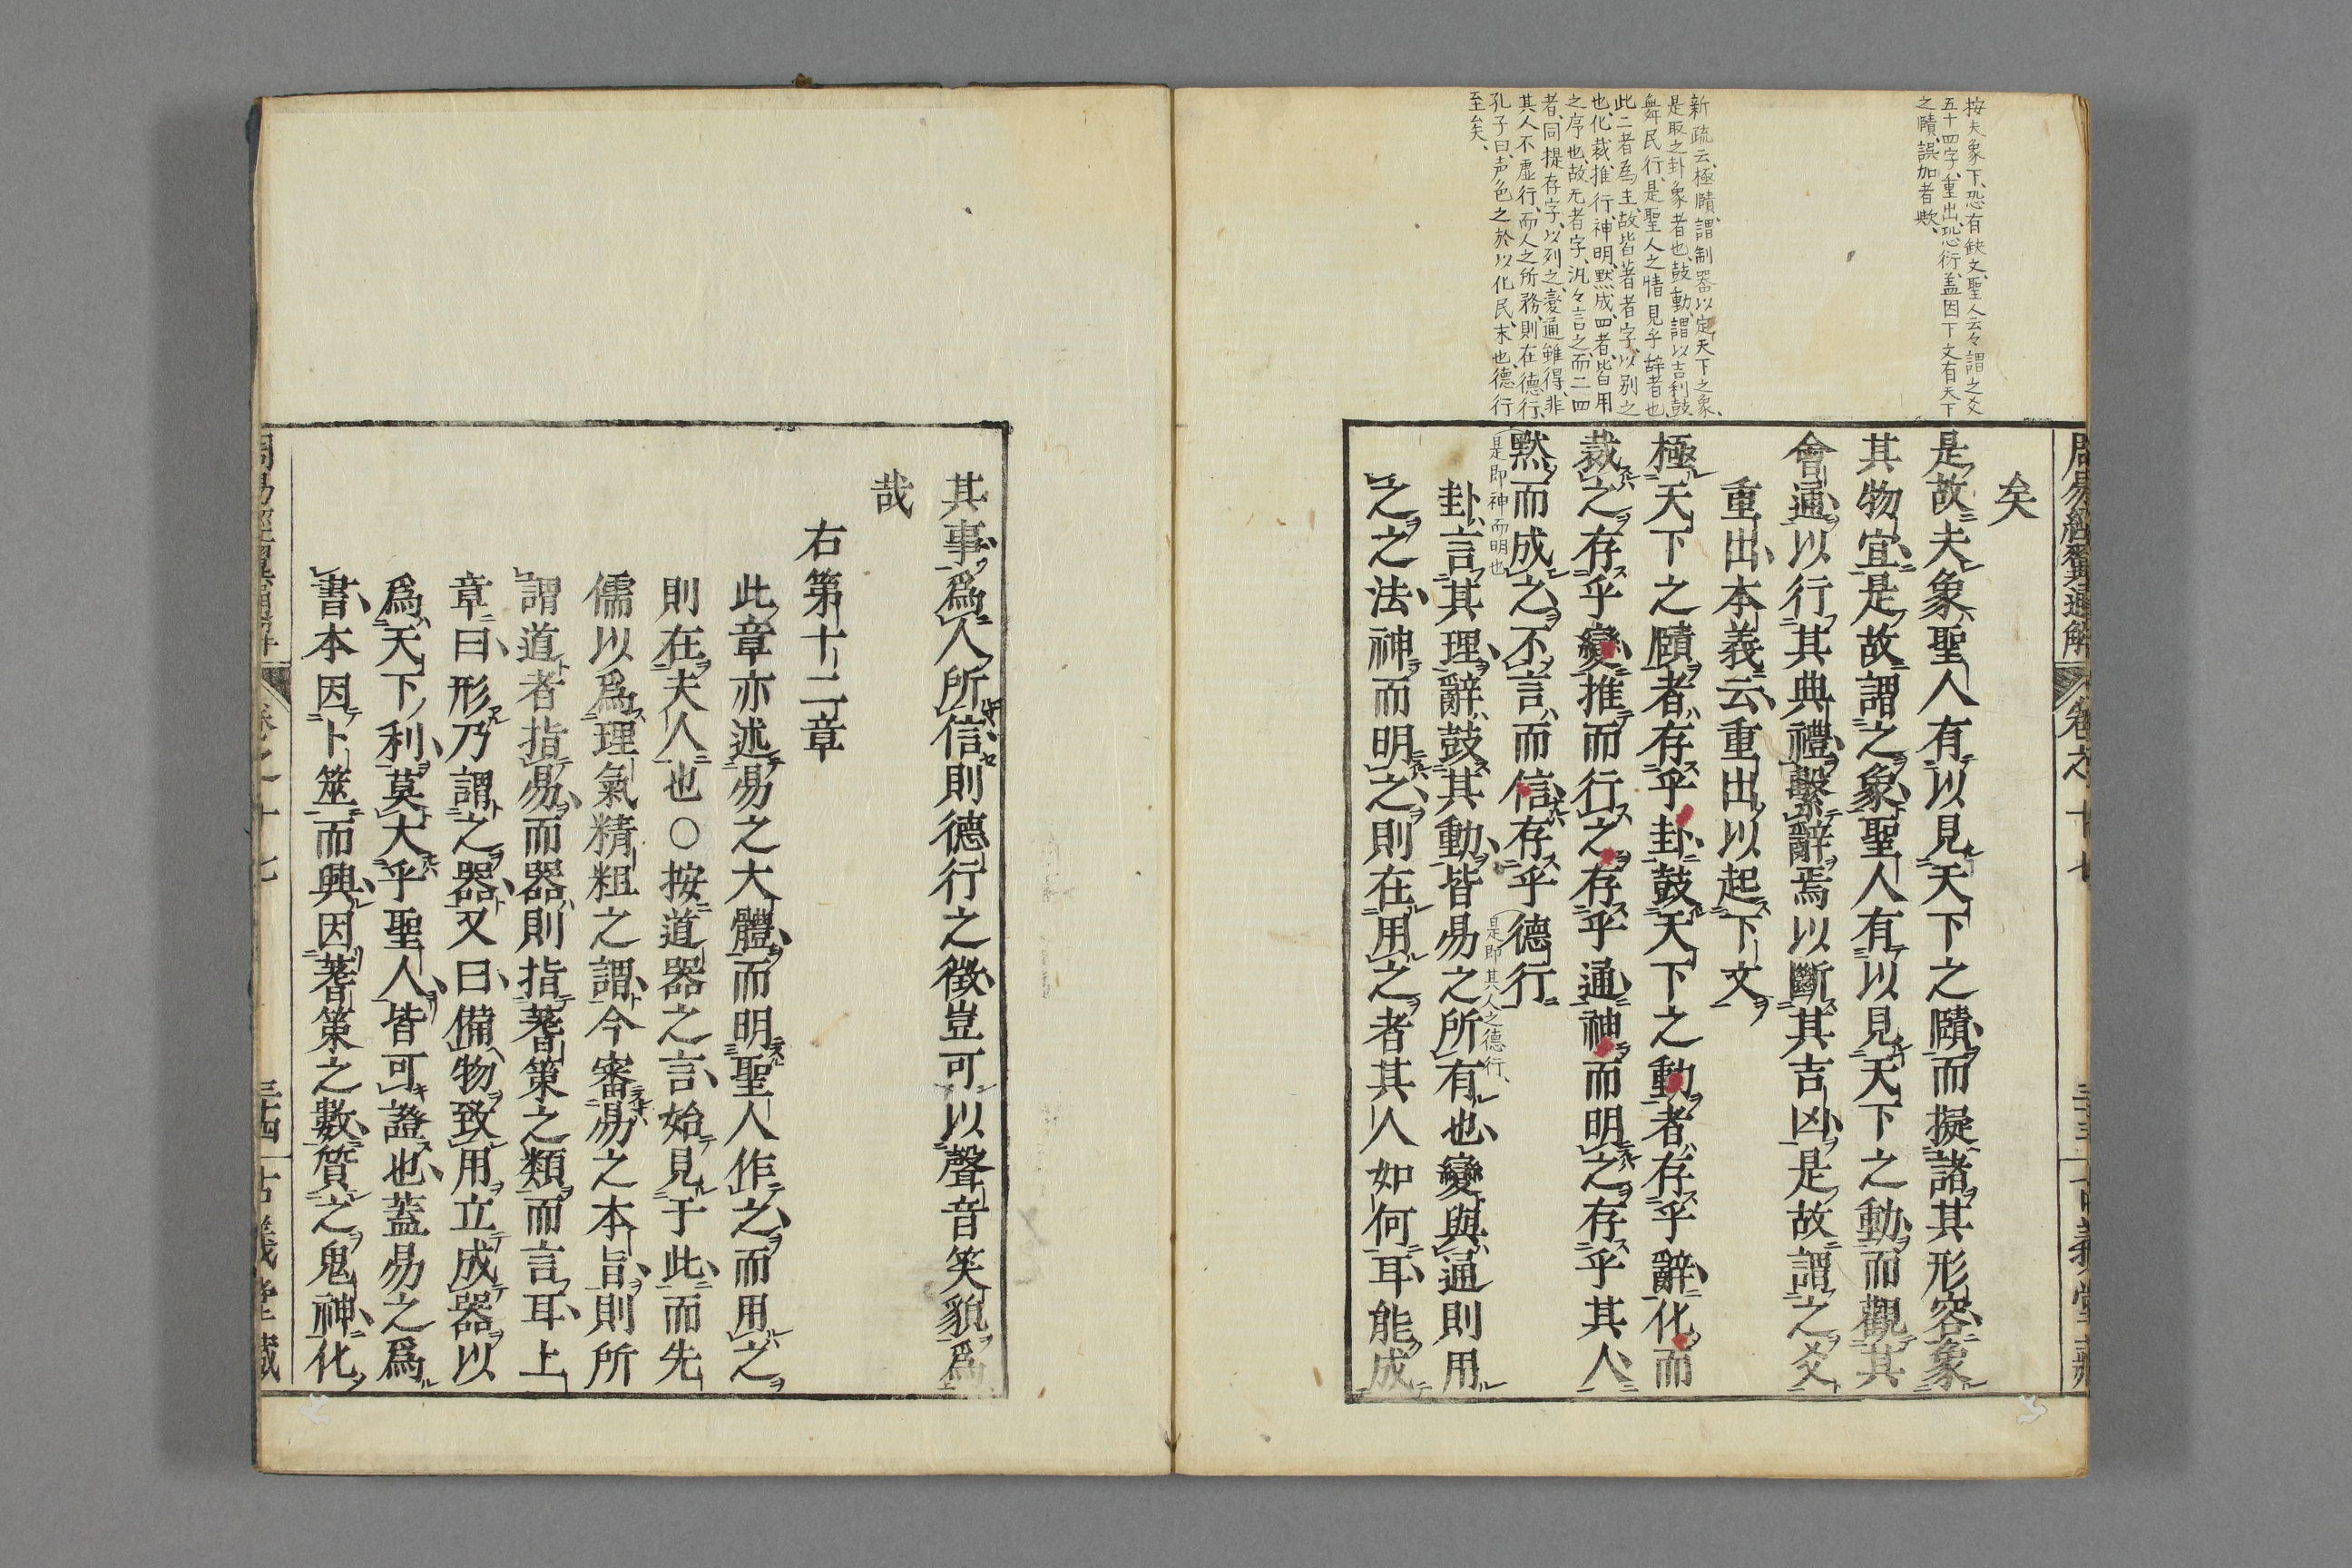 按夫象下、恐有缺文、聖人云々謂之爻
五十四字、重出、恐衍、盖因下文有天下
之賾、誤加者歟、
新疏云、極賾、謂制器以定天下之象、
是取之卦象者也、鼓動、謂以吉利鼓
舞民行、是聖人之情見乎辞者也、
此二者為主、故皆著者字、以别之
也、化裁、推行、神明、黙成、四者、皆用
之序也、故无者字、汎々言之、而二四
者、同提存字、以列之、変通雖得、非
其人不虚行、而人之所務、則在德行、
孔子曰、声色之於以化民、末也、德行
至矣、
周易經翼通解 卷之十七 三十三 古義堂藏
矣
是故夫象聖人有以見天下之賾而擬諸其形容象
其物宜是故謂之象聖人有以見天下之動而觀其
會通以行其典禮繫辭焉以斷其吉凶是故謂之爻
重出本義云重出以起下文
極天下之賾者存乎卦鼓天下之動者存乎辭化而
裁之存乎變推而行之存乎通神而明之存乎其人
黙而成之不言而信存乎德行
是即神而明也
是即其人之德行、
卦言其理辭鼓其動皆易之所有也變與通則用
之之法神而明之則在用之者其人如何耳能成
其事爲人所信則德行之徴豈可以聲音笑貌爲
哉
右第十二章
此章亦述易之大體而明聖人作之而用之
則在夫人也○按道器之言始見于此而先
儒以爲理氣精粗之謂今審易之本旨則所
謂道者指易而器則指蓍策之類而言耳上
章曰形乃謂之器又曰備物致用立成器以
爲天下利莫大乎聖人皆可證也蓋易之爲
書本因卜筮而興因蓍策之數質之鬼神化
周易經翼通解 卷之十七 三十四 古義堂藏